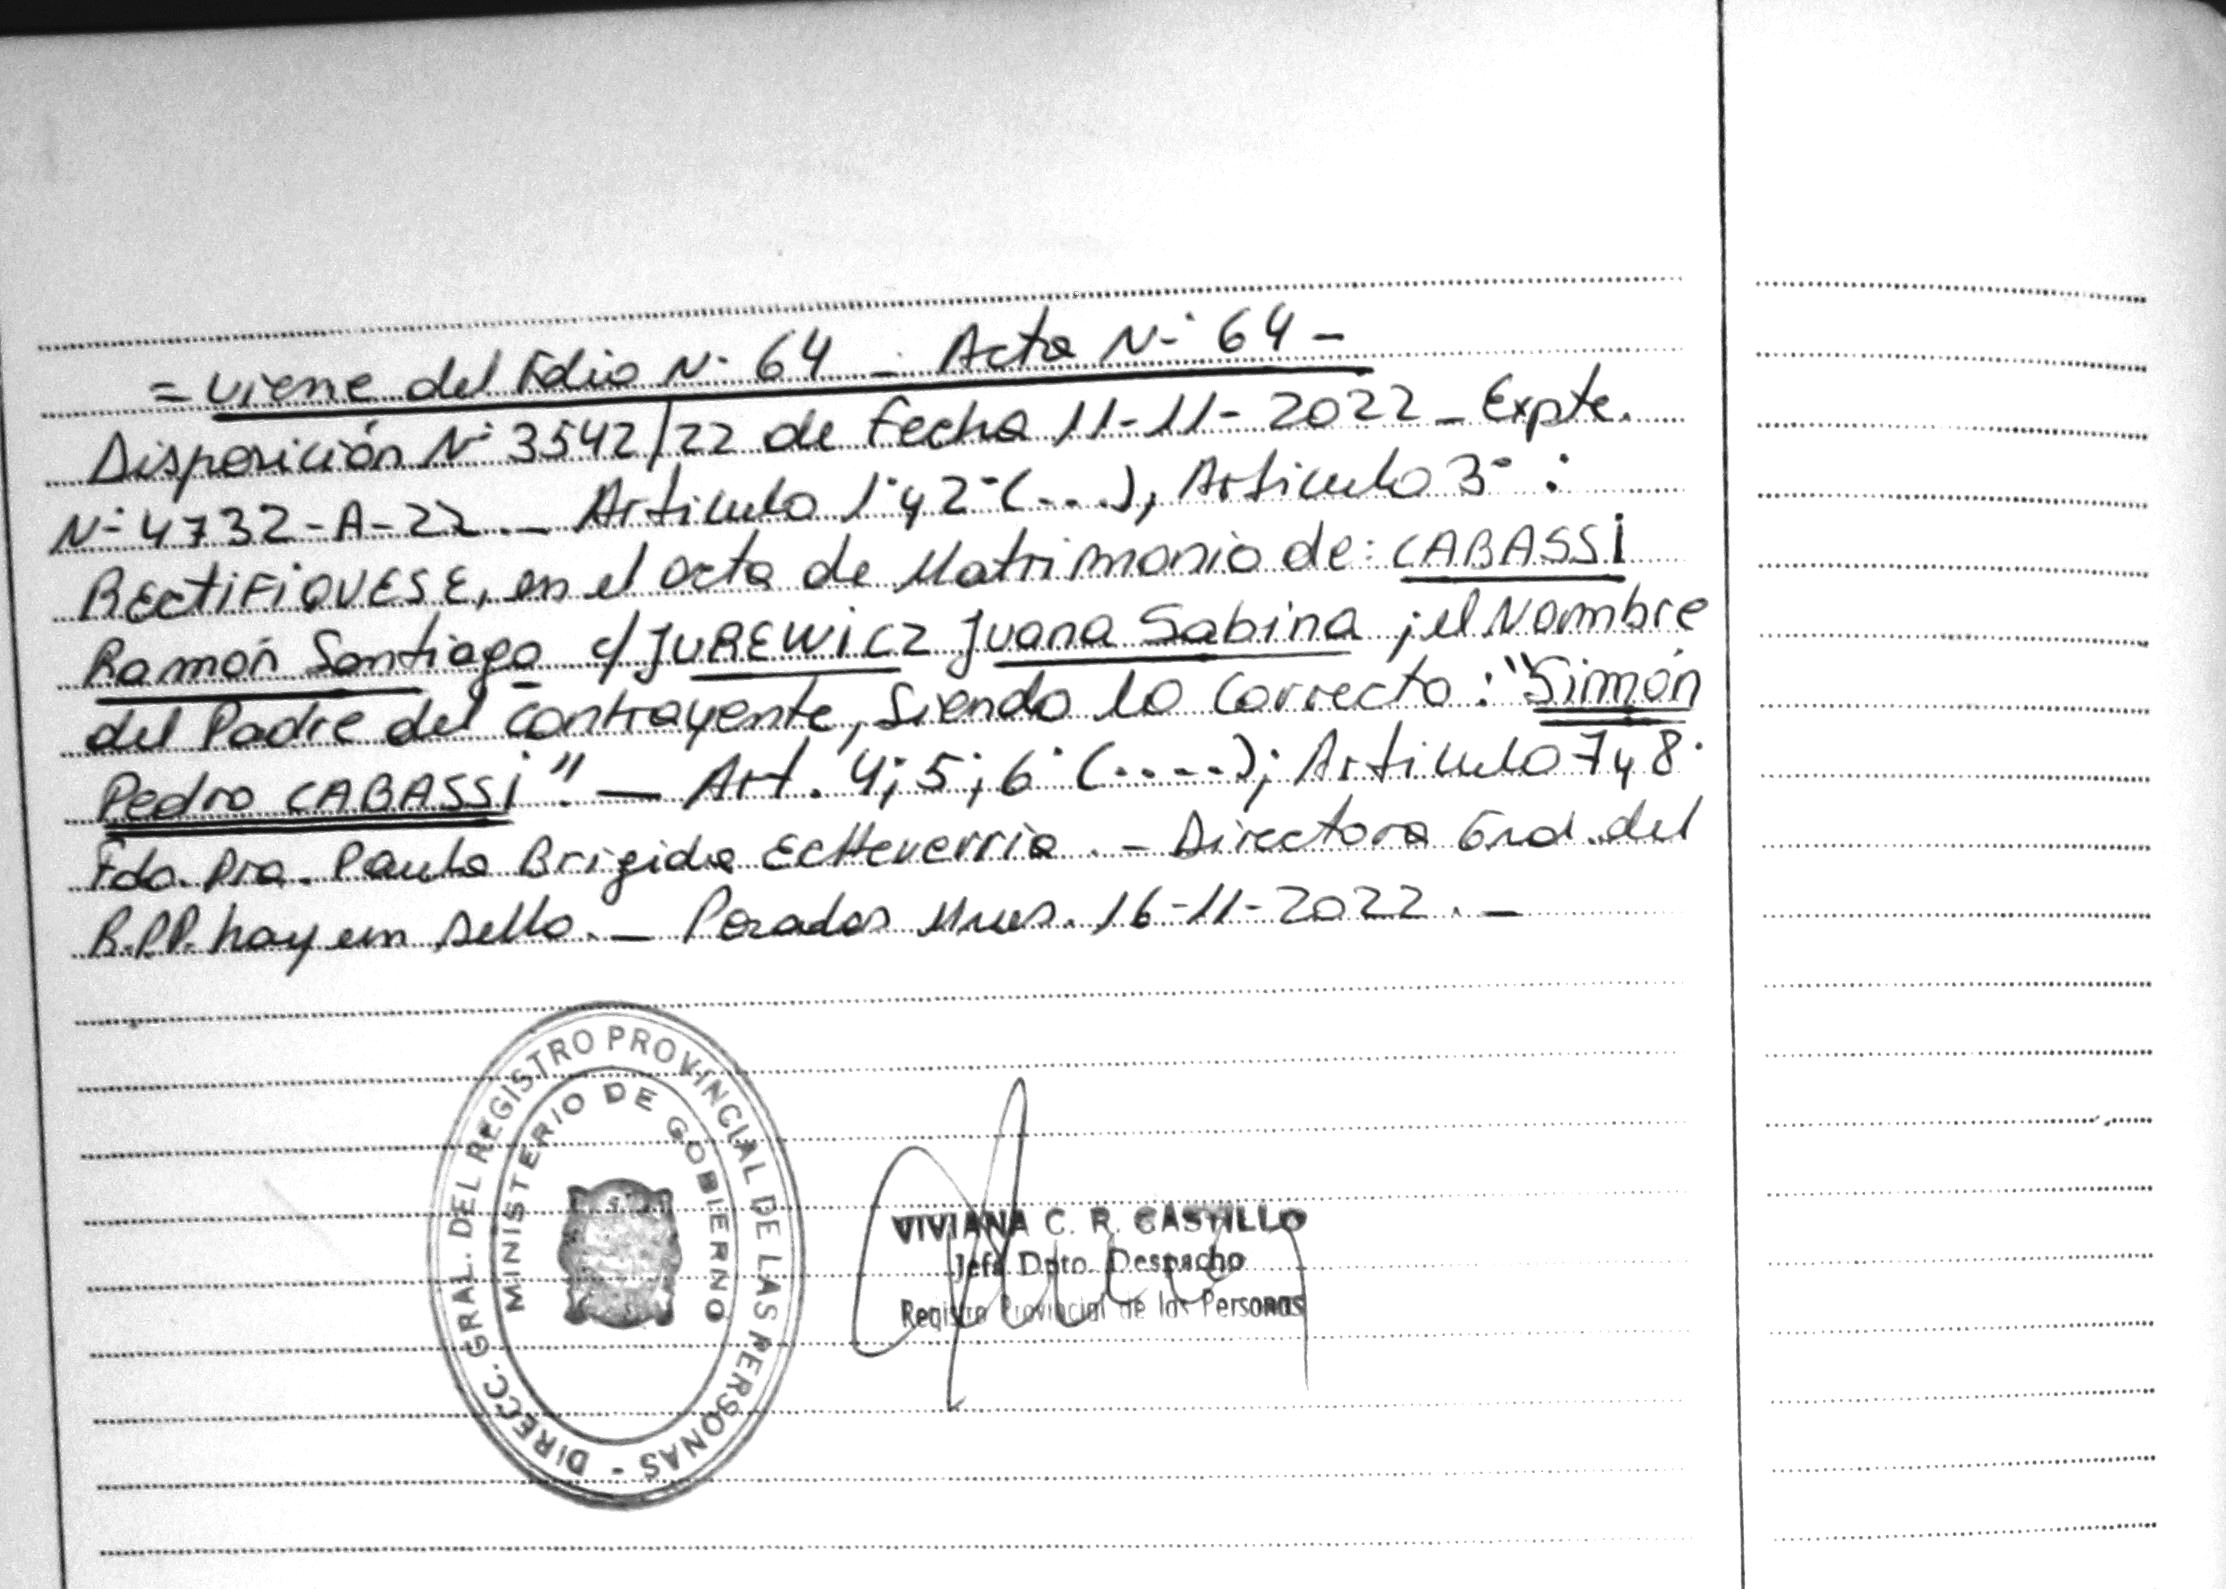 = Viene del Folio N° 64 - Acta N° 64 -
Disposición N° 3542/22 de Fecha 11-11-2022 - Expte.
N° 4732-A-22. - Articulo 1° y 2° (...), Articulo 3° :
RECTIFIQUESE, en el acta de Matrimonio de: CABASSI
Ramón Santiago c/ JUREWICZ Juana Sabina ; el Nombre
del Padre del contrayente, Siendo lo Correcto : "Simón
Pedro CABASSI". - Art. 4; 5; 6° (....); Articulo 7 y 8°
Fdo. Dra. Paula Brigida Echeverria . - Directora Gral. del
R.P.P. hay un sello. - Posadas Mnes. 16-11-2022. -
DIRECC. GRAL. DEL REGISTRO PROVINCIAL DE LAS PERSONAS -
MINISTERIO DE GOBIERNO
VIVIANA C. R. CASTILLO
Jefa Dpto. Despacho
Registro Provincial de las Personas